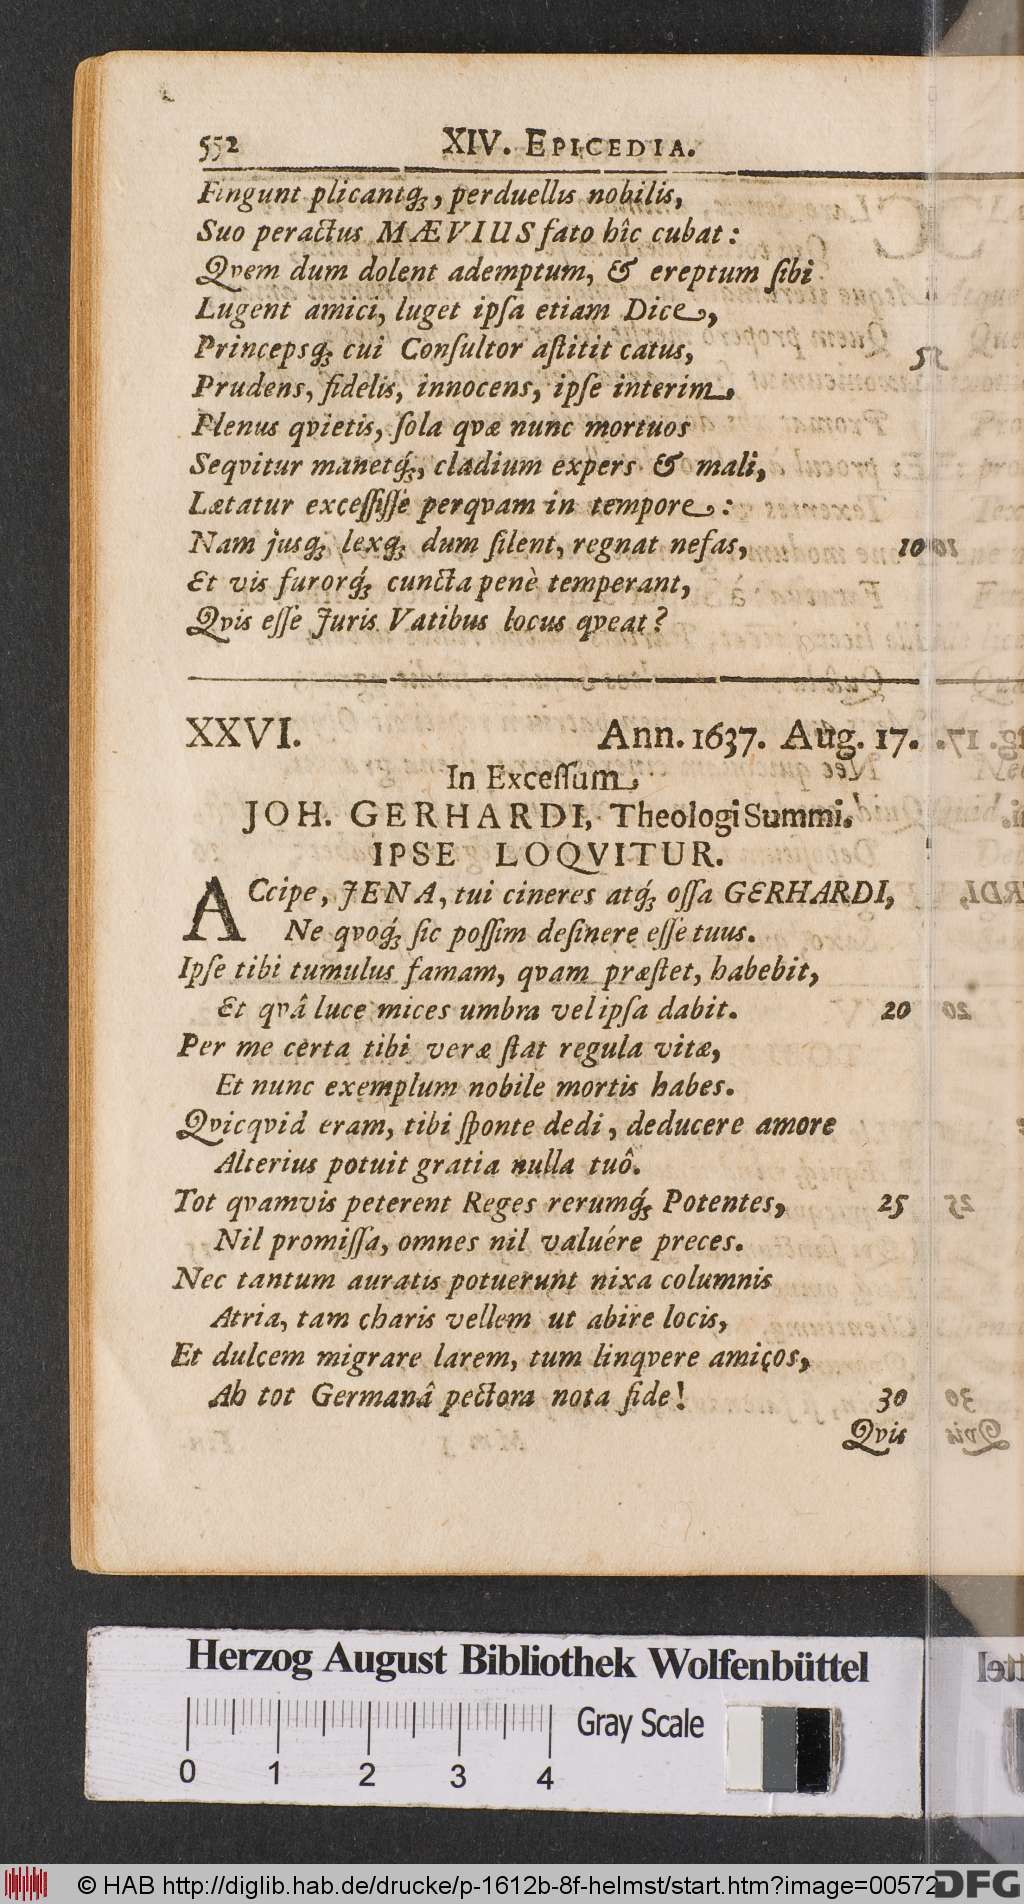 552 XIV. EPICEDIA.
Fingunt plicantq́ꝫ, perduellis nobilis,
Suo peractus MÆVIUS fato hîc cubat:
Qvem dum dolent ademptum, & ereptum ſibi
Lugent amici, luget ipſa etiam Dice,
Princepsqꝫ cui Conſultor aſtitit catus, 5
Prudens, fidelis, innocens, ipſe interim,
Plenus qvietis, ſola qvæ nunc mortuos
Seqvitur manetq́ꝫ, cladium expers & mali,
Lætatur exceſſiſſe perqvam in tempore:
Nam jusqꝫ lexqꝫ dum ſilent, regnat nefas, 10
Et vis furorq́ꝫ cuncta penè temperant,
Qvis eſſe Juris Vatibus locus qveat?
XXVI. Ann. 1637. Aug. 17.
In Exceſſum
JOH. GERHARDI, Theologi Summi.
IPSE LOQVITUR.
ACcipe, JENA, tui cineres atq́ꝫ oſſa GERHARDI,
Ne qvoq́ꝫ ſic poſſim deſinere eſſe tuus.
Ipſe tibi tumulus famam, qvam præſtet, habebit,
Et qvâ luce mices umbra vel ipſa dabit. 20
Per me certa tibi veræ ſtat regula vitæ,
Et nunc exemplum nobile mortis habes.
Qvicqvid eram, tibi ſponte dedi, deducere amore
Alterius potuit gratia nulla tuô.
Tot qvamvis peterent Reges rerumq́ꝫ Potentes, 25
Nil promiſſa, omnes nil valuére preces.
Nec tantum auratis potuerunt nixa columnis
Atria, tam charis vellem ut abire locis,
Et dulcem migrare larem, tum linqvere amiços,
Ab tot Germanâ pectora nota fide! 30
Qvis
Herzog August Bibliothek Wolfenbüttel
Gray Scale
0 1 2 3 4
© HAB http://diglib.hab.de/drucke/p-1612b-8f-helmst/start.htm?image=00572
DFG